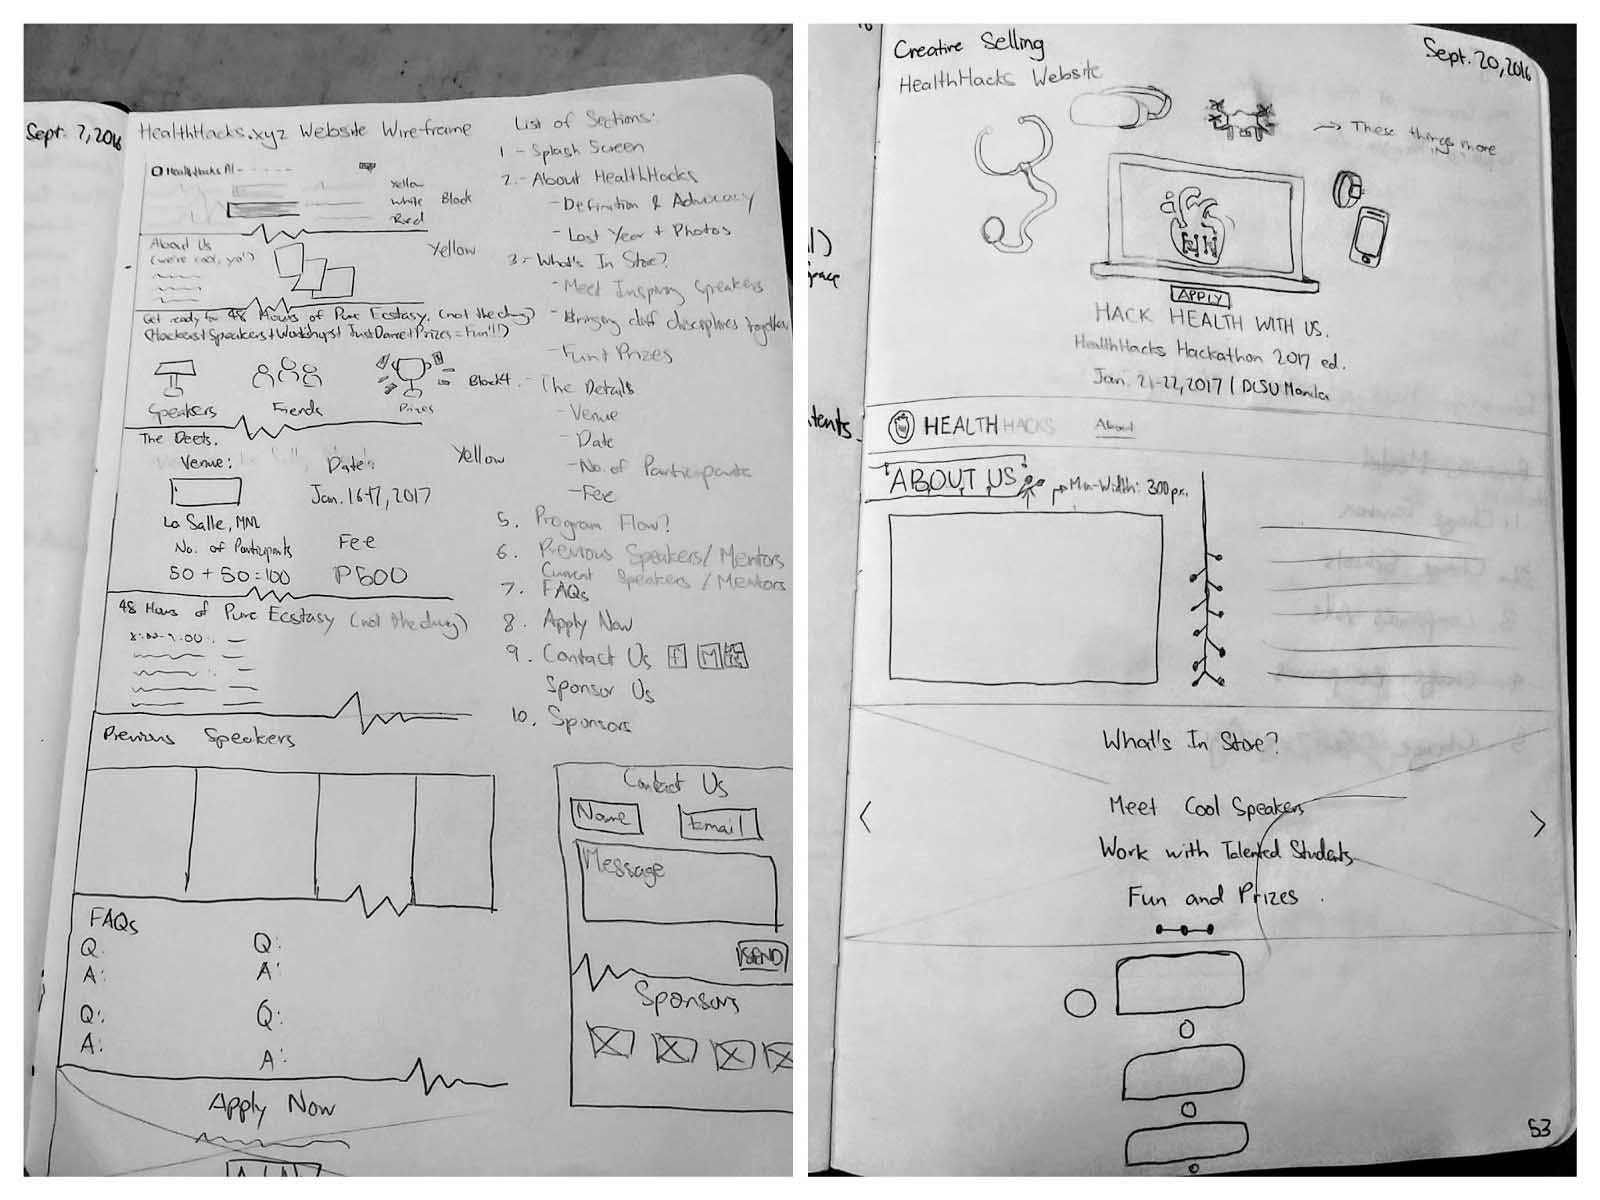 Sept. 7, 2016
HealthHacks.xyz Website Wireframe
HealthHacks
Yellow
White Black
Red
About Us
(we're cool, yo!)
Yellow
Get ready for 48 Hours of Pure Ecstasy. (not the drug)
(Hackers+Speakers+Workshops+JustDance+Prizes=Fun!!!)
Black
Speakers
Friends
Prizes
The Deets.
Venue:
Date:
Yellow
Jan. 16-17, 2017
La Salle, MNL
No. of Participants
Fee
50 + 50 = 100
P500
48 Hours of Pure Ecstasy (not the drug)
8:00-9:00:
Previous Speakers
FAQs
Q:
Q:
A:
A:
Q:
Q:
A:
A:
Apply Now
List of Sections:
1 - Splash Screen
2. - About HealthHacks
- Definition & Advocacy
- Last Year + Photos
3. - What's In Store?
- Meet Inspiring Speakers
- Bringing diff disciplines together
- Fun + Prizes
4. - The Details
- Venue
- Date
- No. of Participants
- Fee
5. Program Flow?
6. Previous Speakers/Mentors
Current Speakers/Mentors
7. FAQs
8. Apply Now
9. Contact Us f M
Sponsor Us
10. Sponsors
Contact Us
Name
Email
Message
SEND
Sponsors
Creative Selling
Sept. 20, 2016
HealthHacks Website
These things more
HH
APPLY
HACK HEALTH WITH US.
HealthHacks Hackathon 2017 ed.
Jan. 21-22, 2017 | DLSU Manila
HEALTHHACKS
About
ABOUT US
Min-Width: 300px.
What's In Store?
Meet Cool Speakers
Work with Talented Students
Fun and Prizes
<
>
53